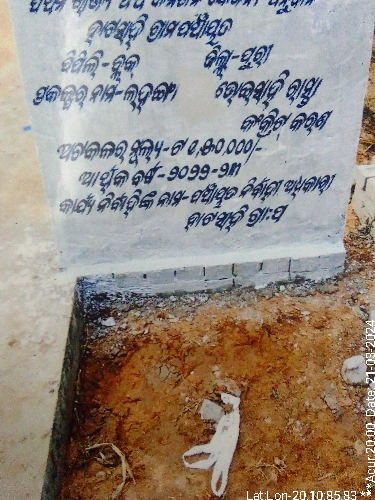 ହାଟସାହି ଗ୍ରାମପଞ୍ଚାୟତ
ପିପିଲି-ବ୍ଲକ ଜିଲ୍ଲା-ପୁରୀ
ପ୍ରକଳ୍ପର ନାମ- ସାହି ରାସ୍ତା
କଂକ୍ରିଟ କରଣ
ଅଟକଳର ମୂଲ୍ୟ-ଟ ୧,୫୦,୦୦୦/-
ଆର୍ଥିକ ବର୍ଷ-୨୦୨୨-୨୩
କାର୍ଯ୍ୟ ନିର୍ବାହିକି ନାମ-ପଞ୍ଚାୟତ ନିର୍ବାହୀ ଅଧିକାରୀ
ହାଟସାହି ଗ୍ରା:ପ
Lat:Lon-20.10:85.83 *** Acur:20.00, Date:21-03-2024